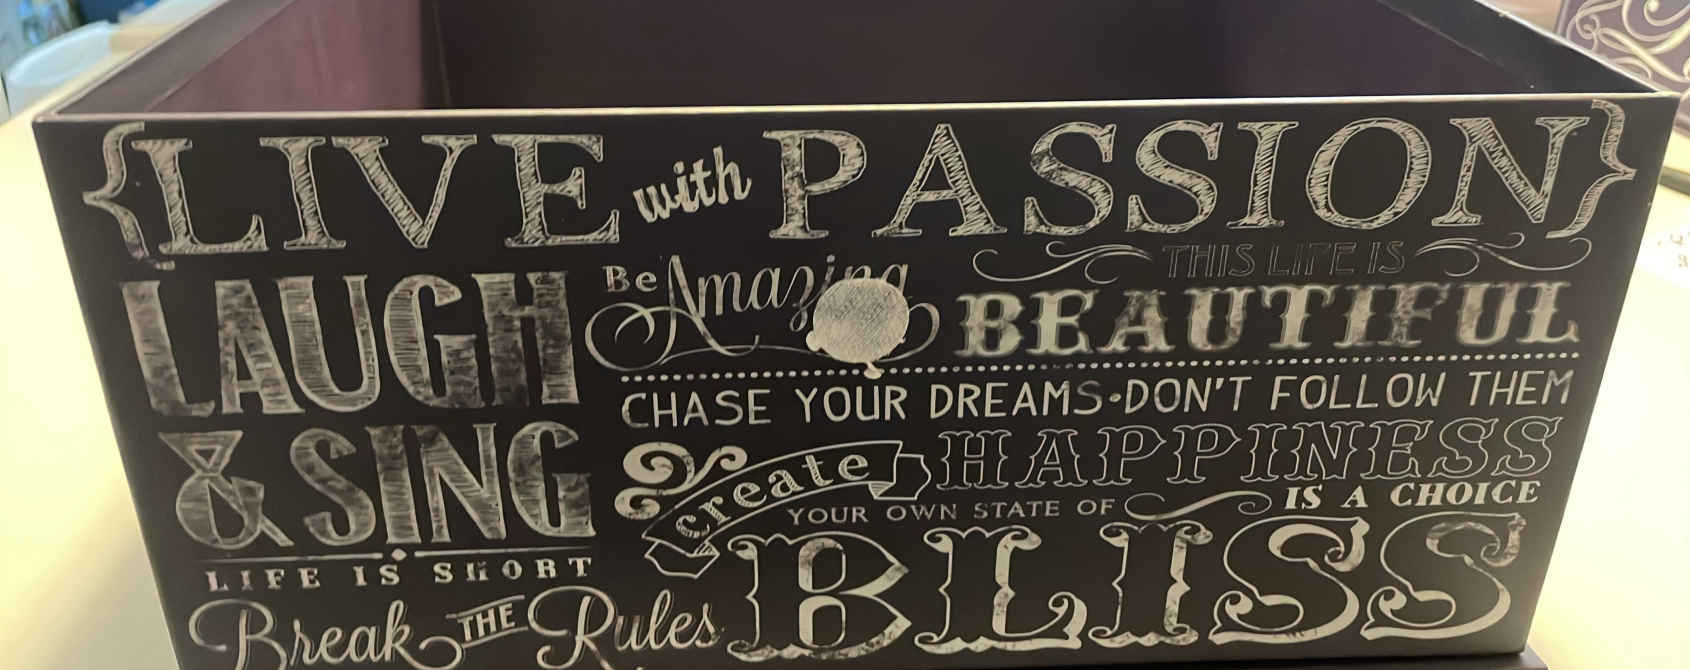 {LIVE with PASSION}
LAUGH
& SING
LIFE IS SHORT
Break THE Rules
Be Amazing
THIS LIFE IS
BEAUTIFUL
CHASE YOUR DREAMS·DON'T FOLLOW THEM
create
YOUR OWN STATE OF
BLISS
HAPPINESS
IS A CHOICE